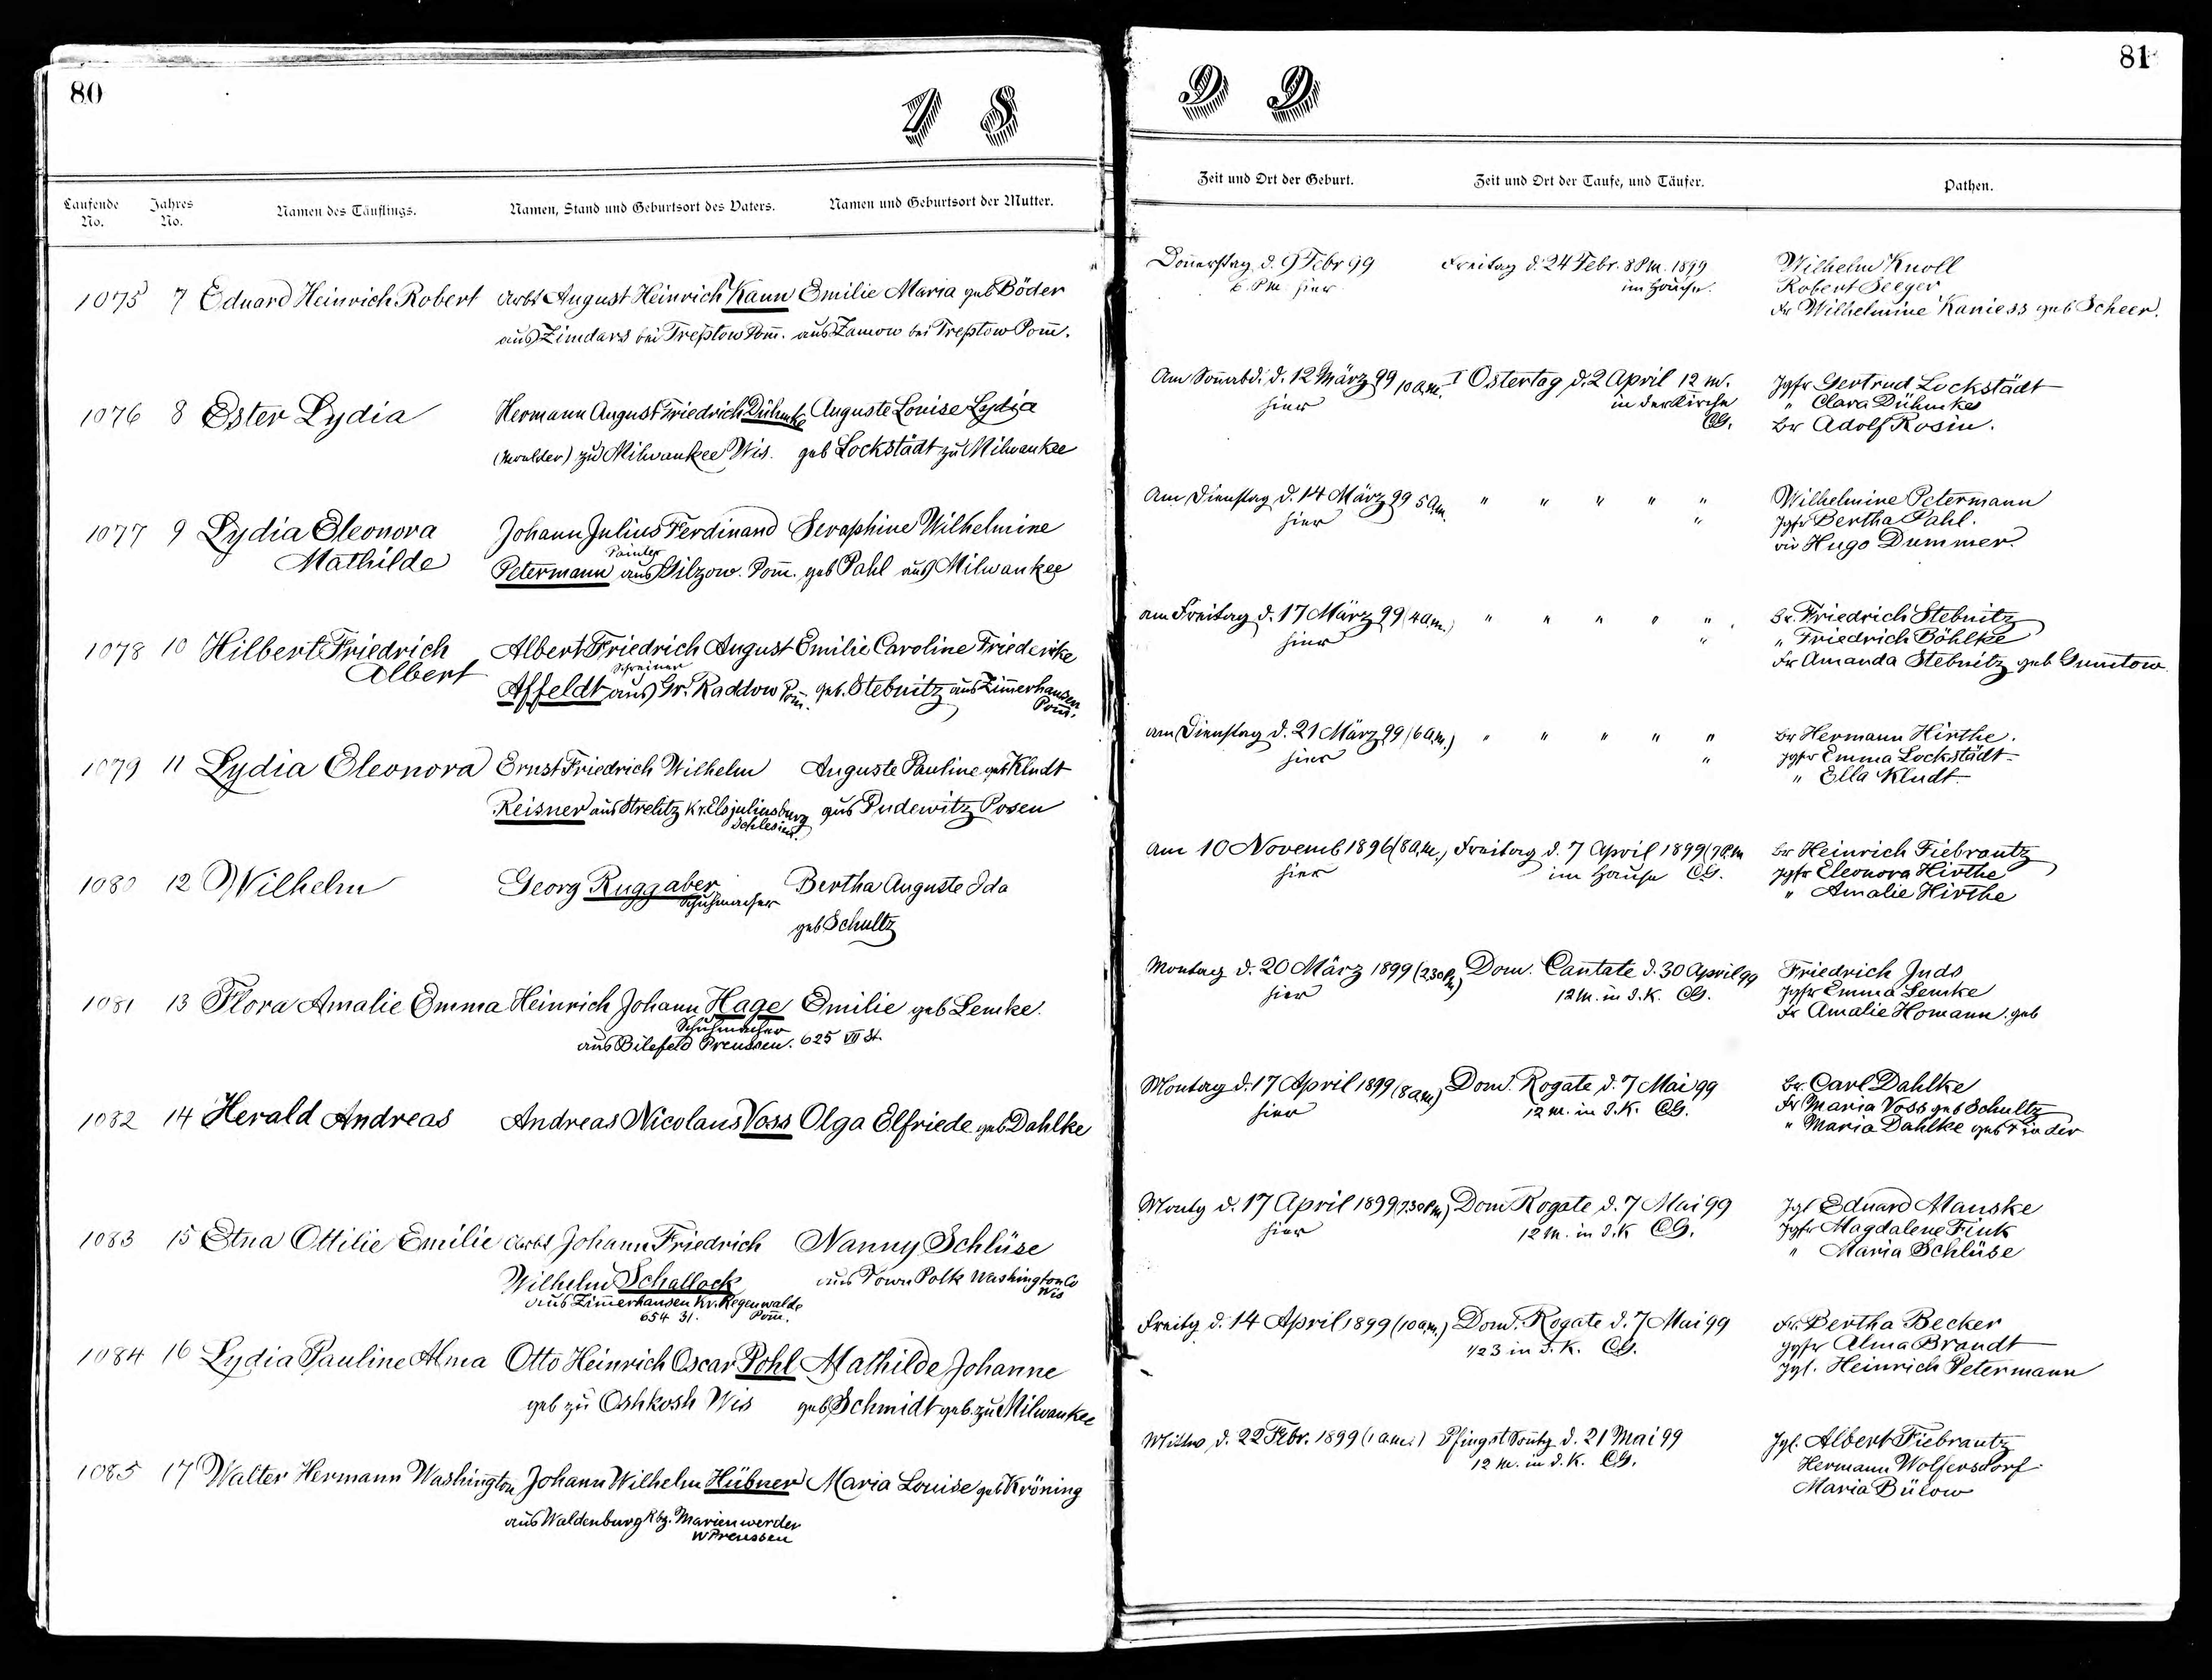 80
1 8
Laufende No.
Jahres No.
Namen des Täuflings.
Namen, Stand und Geburtsort des Vaters.
Namen und Geburtsort der Mutter.
1075 7 Eduard Heinrich Robert Arbt August Heinrich Kann Emilie Maria geb Böder
aus Zimdars bei Treptow Pom̄. aus Zamow bei Treptow Pom̄.
1076 8 Ester Lydia Hermann August Friedrich Dühmke Auguste Louise Lydia
(Moulder) zu Milwaukee Wis. geb Lockstädt zu Milwaukee
1077 9 Lydia Eleonora Johann Julius Ferdinand Seraphine Wilhelmine
Mathilde Painter
Petermann aus Gilzow. Pom̄. geb Pahl aus Milwaukee
1078 10 Hilbert Friedrich Albert Friedrich August Emilie Caroline Friederike
Albert Schreiner
Affeldt aus Gr. Raddow Pom̄. geb. Stebnitz aus Zim̄erhausen
Pom̄.
1079 11 Lydia Eleonora Ernst Friedrich Wilhelm Auguste Pauline geb Kludt
Reisner aus Strelitz Kr. Elsjuliusburg aus Pudewitz Posen
Schlesien.
1080 12 Wilhelm Georg Ruggaber Bertha Auguste Ida
Schuhmacher
geb Schultz
1081 13 Flora Amalie Emma Heinrich Johann Hage Emilie geb Lemke.
Schuhmacher
aus Bilefeld Preussen. 625 VII St.
1082 14 Herald Andreas Andreas Nicolaus Voss Olga Elfriede geb Dahlke
1083 15 Etna Ottilie Emilie Arbt Johann Friedrich Nanny Schlüse
Wilhelm Schallock aus Town Polk Washington Co
Wis
aus Zim̄erhausen Kr. Regenwalde
654 31. Pom̄.
1084 16 Lydia Pauline Alma Otto Heinrich Oscar Pohl Mathilde Johanne
geb zu Oshkosh Wis geb Schmidt geb. zu Milwaukee
1085 17 Walter Hermann Washington Johann Wilhelm Hübner Maria Louise geb Kröning
aus Waldenburg Rbz. Marienwerder
W Preussen
81
9 9
Zeit und Ort der Geburt.
Zeit und Ort der Taufe, und Täufer.
Pathen.
Don̄erstag d. 9 Febr 99 Freitag d. 24 Febr. 8 P.M. 1899 Wilhelm Knoll
6. P.M. hier im Hause. Robert Seeger
Fr Wilhelmine Kaniess geb Scheer.
Am Son̄abd. d. 12 März 99 10 a.m. I Ostertag d. 2 April 12 M. Jgfr Gertrud Lockstädt
hier in der Kirche " Clara Dühmke
CG. Br Adolf Rosin.
Am Dienstag d. 14 März 99 5 a.m. " " " " " Wilhelmine Petermann
hier " Jgfr Bertha Pahl.
Hugo Dummer.
am Freitag d. 17 März 99 (4 a.m.) " " " " " Br. Friedrich Stebnitz
hier " " Friedrich Böhlke
Fr Amanda Stebnitz geb Gum̄tow
am Dienstag d. 21 März 99 (6 a.m.) " " " " " Br Hermann Hirthe.
hier " Jgfr Emma Lockstädt
" Ella Kludt
am 10 Novemb 1896 (8 a.m.) Freitag d. 7 April 1899 (7 P.M Br Heinrich Fiebrantz
hier im Hause CG. Jgfr Eleonora Hirthe
" Amalie Hirthe
Montag d. 20 März 1899 (2.30 P.M) Dom. Cantate d. 30 April 99 Friedrich Juds
hier 12 M. in d. K. CG. Jgfr Emma Lemke
Fr Amalie Homann. geb
Montag d. 17 April 1899 (8 a.m) Dom. Rogate d. 7 Mai 99 Br. Carl Dahlke
hier 12 M. in d. K. CG. Fr Maria Voss geb Schultz
" Maria Dahlke geb
Montg d. 17 April 1899 (7.30 P.M) Dom Rogate d. 7 Mai 99 Jgl Eduard Manske
hier 12 M. in d. K CG. Jgfr Magdalene Fink
" Maria Schlüse
Freitg d. 14 April 1899 (10 a.m.) Dom. Rogate d. 7 Mai 99 Fr. Bertha Becker
1/2 3 in d. K. CG. Jgfr Alma Brandt
Jgl. Heinrich Petermann
Mittw. d. 22 Febr. 1899 (1 a.m.) Pfingst Son̄tg d. 21 Mai 99 Jgl. Albert Fiebrantz
12 M. in d. K. CG. Hermann Wolfersdorf
Maria Bülow